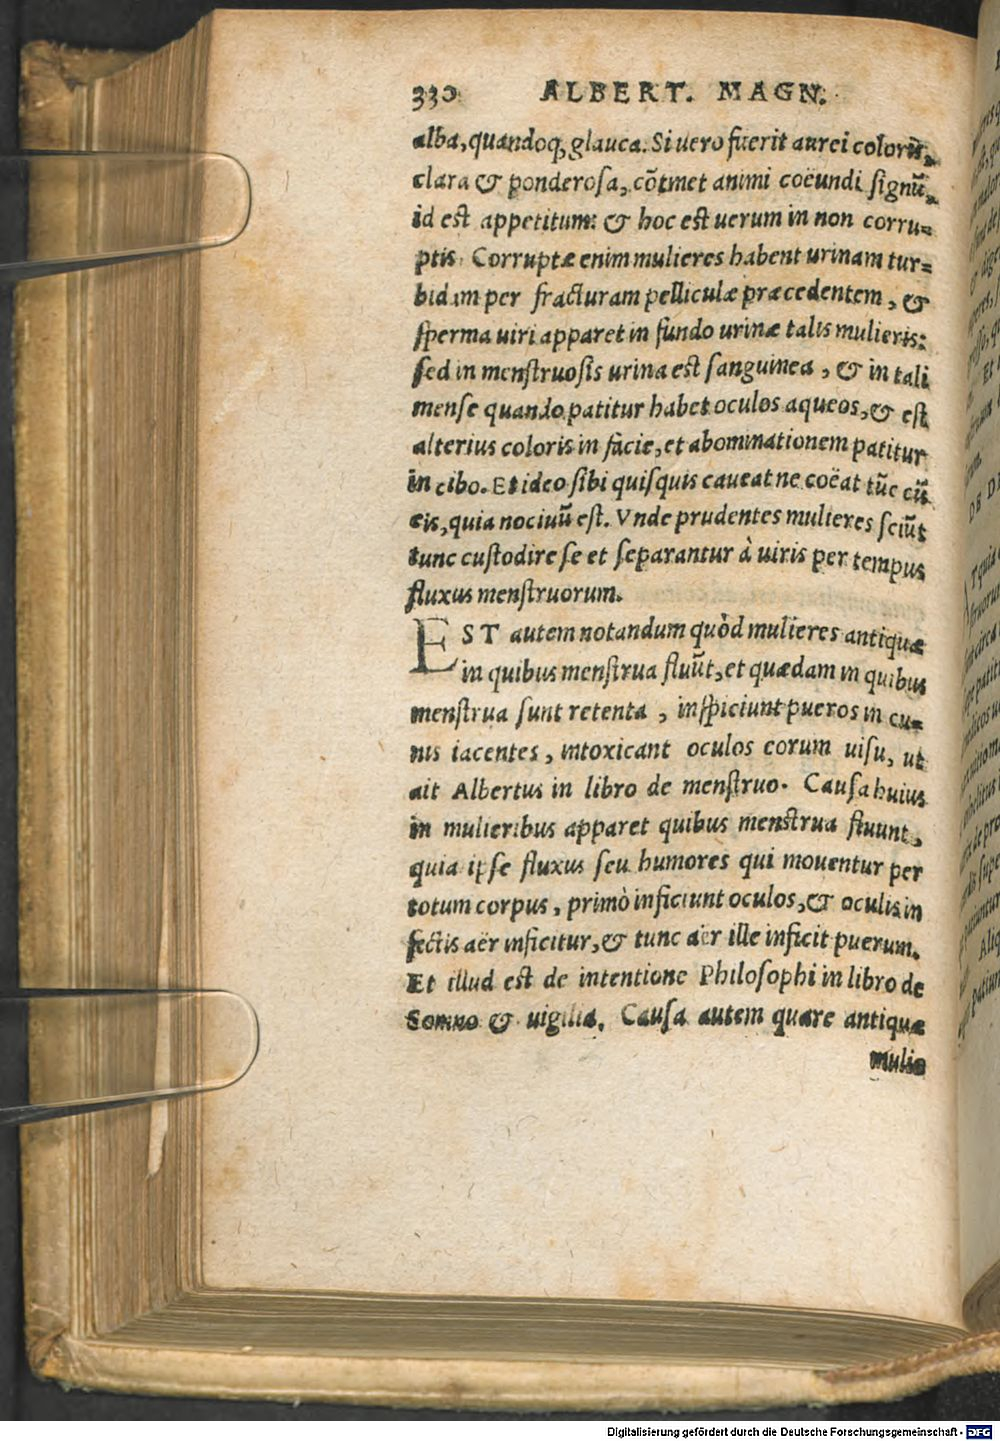 330 ALBERT. MAGN.
alba, quandoq; glauca. Si uero fuerit aurei coloris,
clara & ponderosa, cõtinet animi coëundi signũ,
id est appetitum: & hoc est uerum in non corru-
ptis. Corruptæ enim mulieres habent urinam tur-
bidam per fracturam pelliculæ præcedentem, &
sperma uiri apparet in fundo urinæ talis mulieris:
sed in menstruosis urina est sanguinea, & in tali
mense quando patitur habet oculos aqueos, & est
alterius coloris in facie, et abominationem patitur
in cibo. Et ideo sibi quisquis caueat ne coëat tũc cũ
eis, quia nociuũ est. Vnde prudentes mulieres sciũt
tunc custodire se et separantur à uiris per tempus
fluxus menstruorum.
EST autem notandum quòd mulieres antiquæ
in quibus menstrua fluũt, et quædam in quibus
menstrua sunt retenta, inspiciunt pueros in cu-
nis iacentes, intoxicant oculos eorum uisu, ut
ait Albertus in libro de menstruo. Causa huius
in mulieribus apparet quibus menstrua fluunt,
quia ipse fluxus seu humores qui mouentur per
totum corpus, primò inficiunt oculos, & oculis in
fectis aër inficitur, & tunc aër ille inficit puerum.
Et illud est de intentione Philosophi in libro de
Somno & uigilia. Causa autem quare antiquæ
mulie
Digitalisierung gefördert durch die Deutsche Forschungsgemeinschaft - DFG